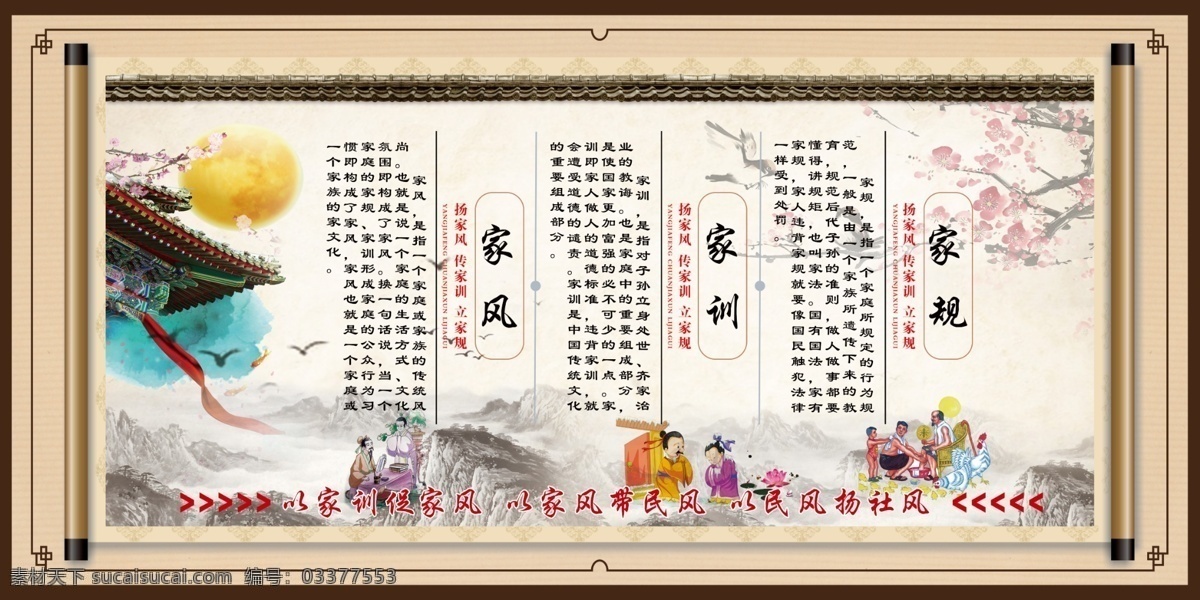 家规
扬家风 传家训 立家规
YANGJIAFENG CHUANJIAXUN LIJIAGUI
家规,是指一个家庭所规定的行为规
范,一般是由一个家族所遗传下来的教
育,规范后代子孙的准则,做人做事都要
懂得,讲规矩,也叫家法。国有国法,家有
家规,家人违背家规就要像国民触犯法律
一样受到处罚。
家训
扬家风 传家训 立家规
YANGJIAFENG CHUANJIAXUN LIJIAGUI
家训,是指对子孙立身处世、齐家治
业的教诲。也是家庭中的重要组成部分,
是使国家更加富强的必不可少的一点。家
训即家人做人的道德标准,违背家训,就
会遭受道德的谴责。家训是中国传统文化
的重要组成部分。
家风
扬家风 传家训 立家规
YANGJIAFENG CHUANJIAXUN LIJIAGUI
家风,是指一个家庭或家族的传统风
尚。也就是说一个家庭的生活方式、文化
氛围即构成了家风。换一句话说,当一个
家庭的家规、家训形成家庭的公众行为习
惯即构成了家风,家风也就是一个家庭或
一个家族的家文化。
>>>>> 以家训促家风 以家风带民风 以民风扬社风 <<<<<
素材天下 sucaisucai.com 编号: 03377553